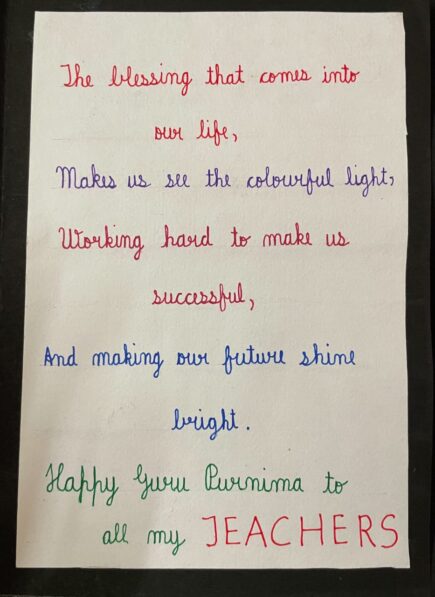 The blessing that comes into
our life,
Makes us see the colourful light,
Working hard to make us
successful,
And making our future shine
bright.
Happy Guru Purnima to
all my TEACHERS